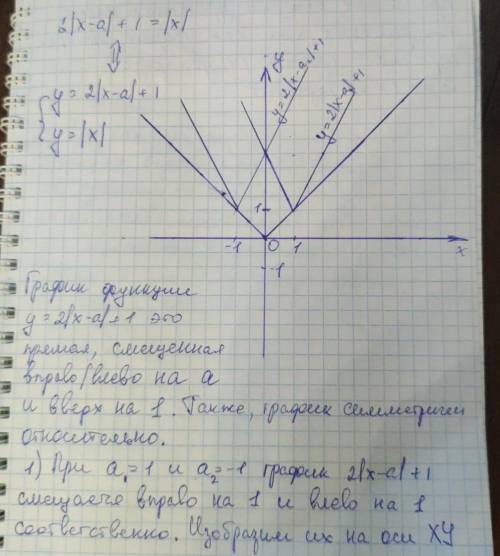 2|x-a|+1=|x|
y=2|x-a|+1
y=|x|
y
y=2|x-a₂|+1
y=2|x-a₁|+1
1
-1 0 1 x
-1
График функции
y=2|x-a|+1 это
прямая, смещенная
вправо/влево на a
и вверх на 1. Также, график симметричен
относительно.
1) При a₁=1 и a₂=-1 график 2|x-a|+1
смещается вправо на 1 и влево на 1
соответственно. Изобразим их на оси XY